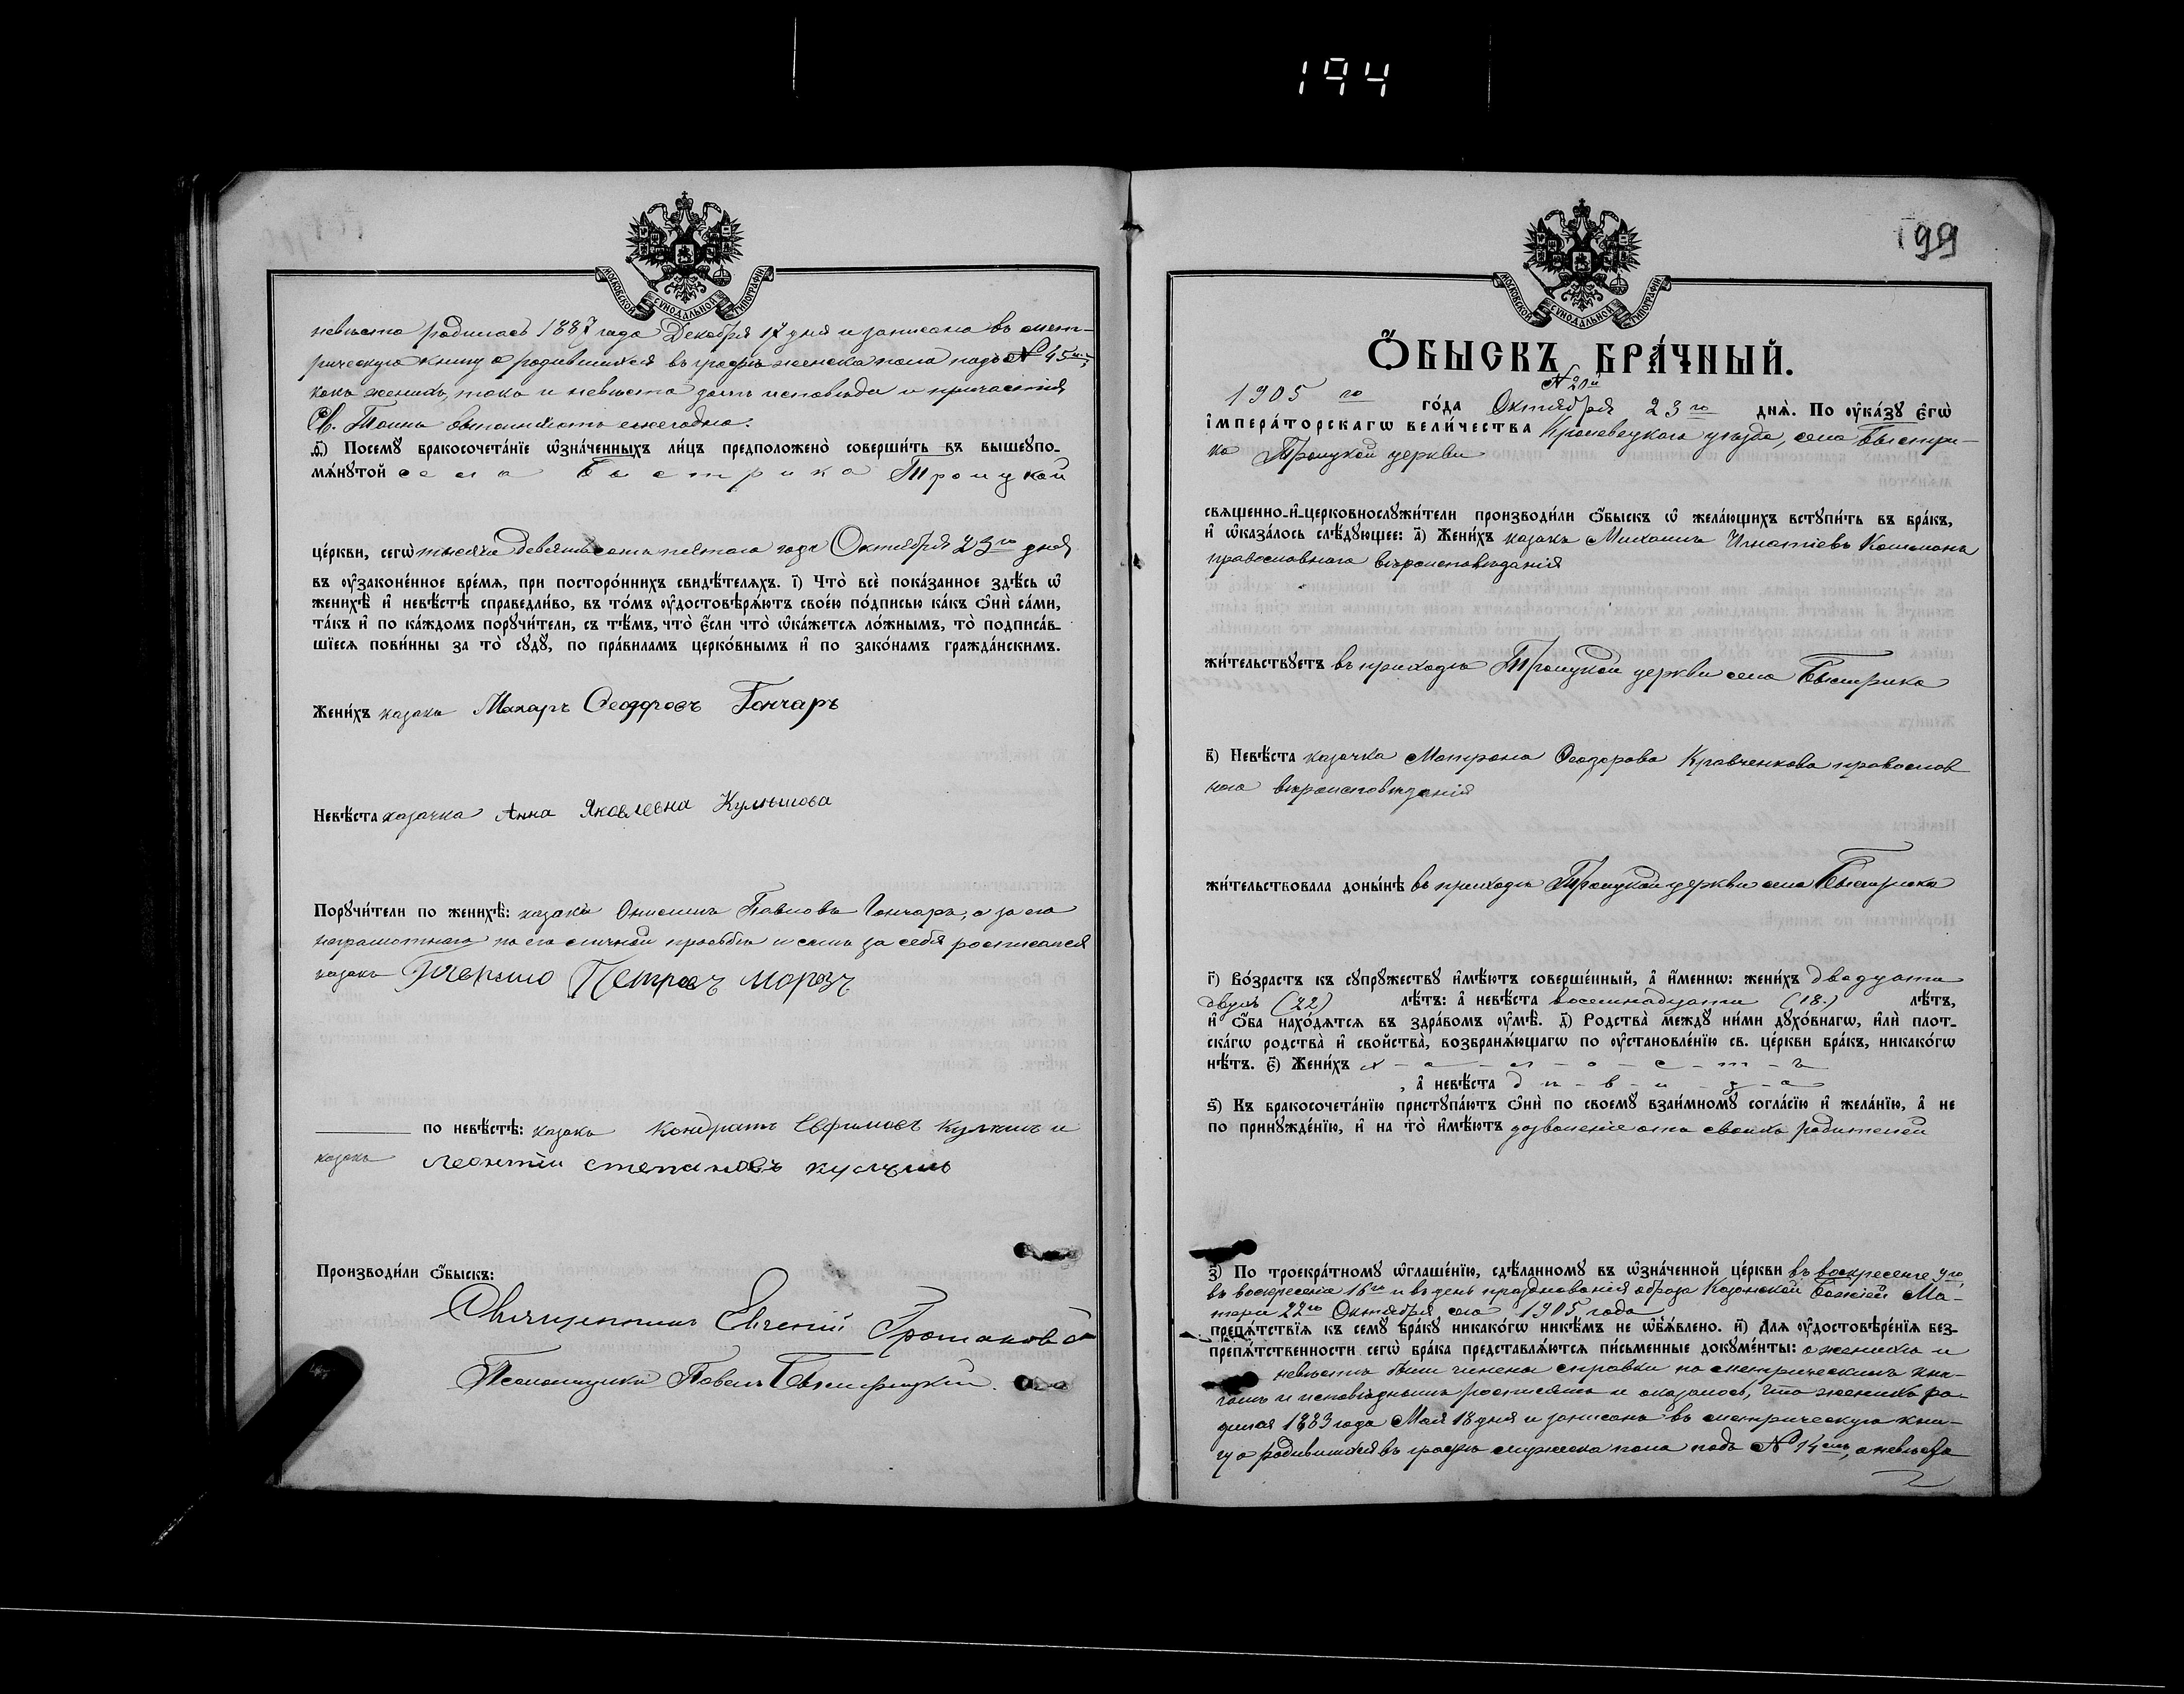 194
МОСКОВСКОЙ СѴНОДАЛЬНОЙ ТИПОГРАФІИ
невѣста родилась 1887 года Декабря 17 дня и записана въ мет-
рическую книгу о родившихся въ графѣ женска пола подъ № 45мъ,
какъ женихъ, такъ и невѣста долгъ исповѣди и причастія
Св. Таинъ ежегодно.
ѳ҃) Посемꙋ бракосочета́нїе ѡ҆зна́ченныхъ ли́цъ предположено̀ соверши́ть въ вышеꙋпо-
мѧ́нꙋтой села Быстрика Троицкой
це́ркви, сегѡ̀ тысяча девятьсотъ пятаго года Октября 23го дня
въ ᲂу҆законе́нное вре́мѧ, при посторо́ннихъ свидѣ́телѧхъ. і҃) Что̀ всѐ пока́занное здѣ́сь ѡ҆
женихѣ̀ и҆ невѣ́стѣ справедли́во, въ то́мъ ᲂу҆достовѣрѧ́ютъ свое́ю по́дписью ка́къ ѻ҆нѝ са́ми,
та́къ и҆ по ка́ждомъ порꙋчи́тели, съ тѣ́мъ, что̀ є҆́сли что̀ ѡ҆ка́жетсѧ ло́жнымъ, то̀ подписа́в-
шїесѧ пови́нны за то̀ сꙋдꙋ̀, по пра́виламъ церко́внымъ и҆ по зако́намъ гражда́нскимъ.
Жени́хъ казакъ Макаръ Ѳеодоровъ Гончаръ
Невѣ́ста казачка Анна Яковлевна Кулишова
Порꙋчи́тели по женихѣ̀: казаки Онисимъ Павловъ Гончаръ, а за его
неграмотнаго по его личной просьбѣ и самъ за себя росписался
казакъ Петровъ Морозъ
по невѣ́стѣ: казаки Кондратъ Ефимовъ Кулишъ и
казакъ Леонтій Степановъ Кулишъ
Производи́ли ѻ҆́быскъ:
Священникъ Евгеній
Псаломщикъ Павелъ Быстрицкій.
199
МОСКОВСКОЙ СѴНОДАЛЬНОЙ ТИПОГРАФІИ
Ѻ҆́БЫСКЪ БРА́ЧНЫЙ.
№ 20й
1905 го го́да Октября 23го днѧ̀. По ᲂу҆ка́зꙋ є҆гѡ̀
і҆мпера́торскагѡ вели́чества Кролевецкаго уѣзда, села Быстри-
ка Троицкой церкви
свѧщенно-и҆-церковнослꙋжи́тели производи́ли ѻ҆́быскъ ѡ҆ жела́ющихъ встꙋпи́ть въ бра́къ,
и҆ ѡ҆каза́лось слѣ́дꙋющее: а҃) Жени́хъ казакъ Михаилъ Игнатіевъ Кошманъ
православнаго вѣроисповѣданія
жи́тельствꙋетъ въ приходѣ Троицкой церкви села Быстрика
в҃) Невѣ́ста казачка Матрона Ѳеодорова Кравченкова православ
наго вѣроисповѣданія
жи́тельствовала доны́нѣ въ приходѣ Троицкой церкви села Быстрика
г҃) Во́зрастъ къ сꙋпрꙋ́жествꙋ и҆мѣ́ютъ соверше́нный, а҆ и҆́меннѡ: жени́хъ двадцати
двухъ (22) лѣ́тъ: а҆ невѣ́ста восемнадцати (18.) лѣ́тъ,
и҆ ѻ҆́ба нахо́дѧтсѧ въ здра́вомъ ᲂу҆мѣ̀. д҃) Родства̀ междꙋ̀ ни́ми дꙋхо́внагѡ, и҆лѝ плот-
ска́гѡ родства̀ и҆ сво́йства̀, возбранѧ́ющагѡ по ᲂу҆становле́нїю св. це́ркви бра́къ, никако́гѡ
нѣ́тъ. є҃) Жени́хъ х-о-л-о-с-т-ъ
, а҆ невѣ́ста д-ѣ-в-и-ц-а
ѕ҃) Къ бракосочета́нїю пристꙋпа́ютъ ѻ҆нѝ по своемꙋ̀ взаи́мномꙋ согла́сїю и҆ жела́нїю, а҆ не
по принꙋжде́нїю, и҆ на то̀ и҆мѣ́ютъ дозволеніе отъ своихъ родителей
з҃) По троекра́тномꙋ ѡ҆глаше́нїю, сдѣ́ланномꙋ въ ѡ҆зна́ченной це́ркви въ воскресеніе 9го,
въ воскресеніе 16го и въ день празднованія образа Казанской Божіей Ма-
тери 22го Октября сего 1905 года
препѧ́тствїѧ къ семꙋ̀ бра́кꙋ никако́гѡ никѣ́мъ не ѡ҆б̾ѧ́влено. и҃) Длѧ ᲂу҆достовѣре́нїѧ без-
препѧ́тственности сегѡ̀ бра́ка представлѧ́ютсѧ пи́сьменные докꙋме́нты: о женихѣ и
невѣстѣ были чинены справки по метрическимъ кни-
гамъ и исповѣднымъ росписямъ и оказалось, что женихъ ро-
дился 1883 года Мая 18 дня и записанъ въ метрическую кни-
гу о родившихся въ графѣ мужеска пола подъ № 14мъ, а невѣста